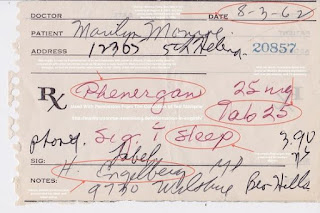 DOCTOR DATE 8-3-62
PATIENT Marilyn Monroe
ADDRESS 12305 5th Helena 20857
Rx Phenergan 25 mg
Tab 25
phoned. Sig: † Sleep 3.90
Label
SIG: H. Engelberg MD
NOTES: 9730 Wilshire Bev Hills